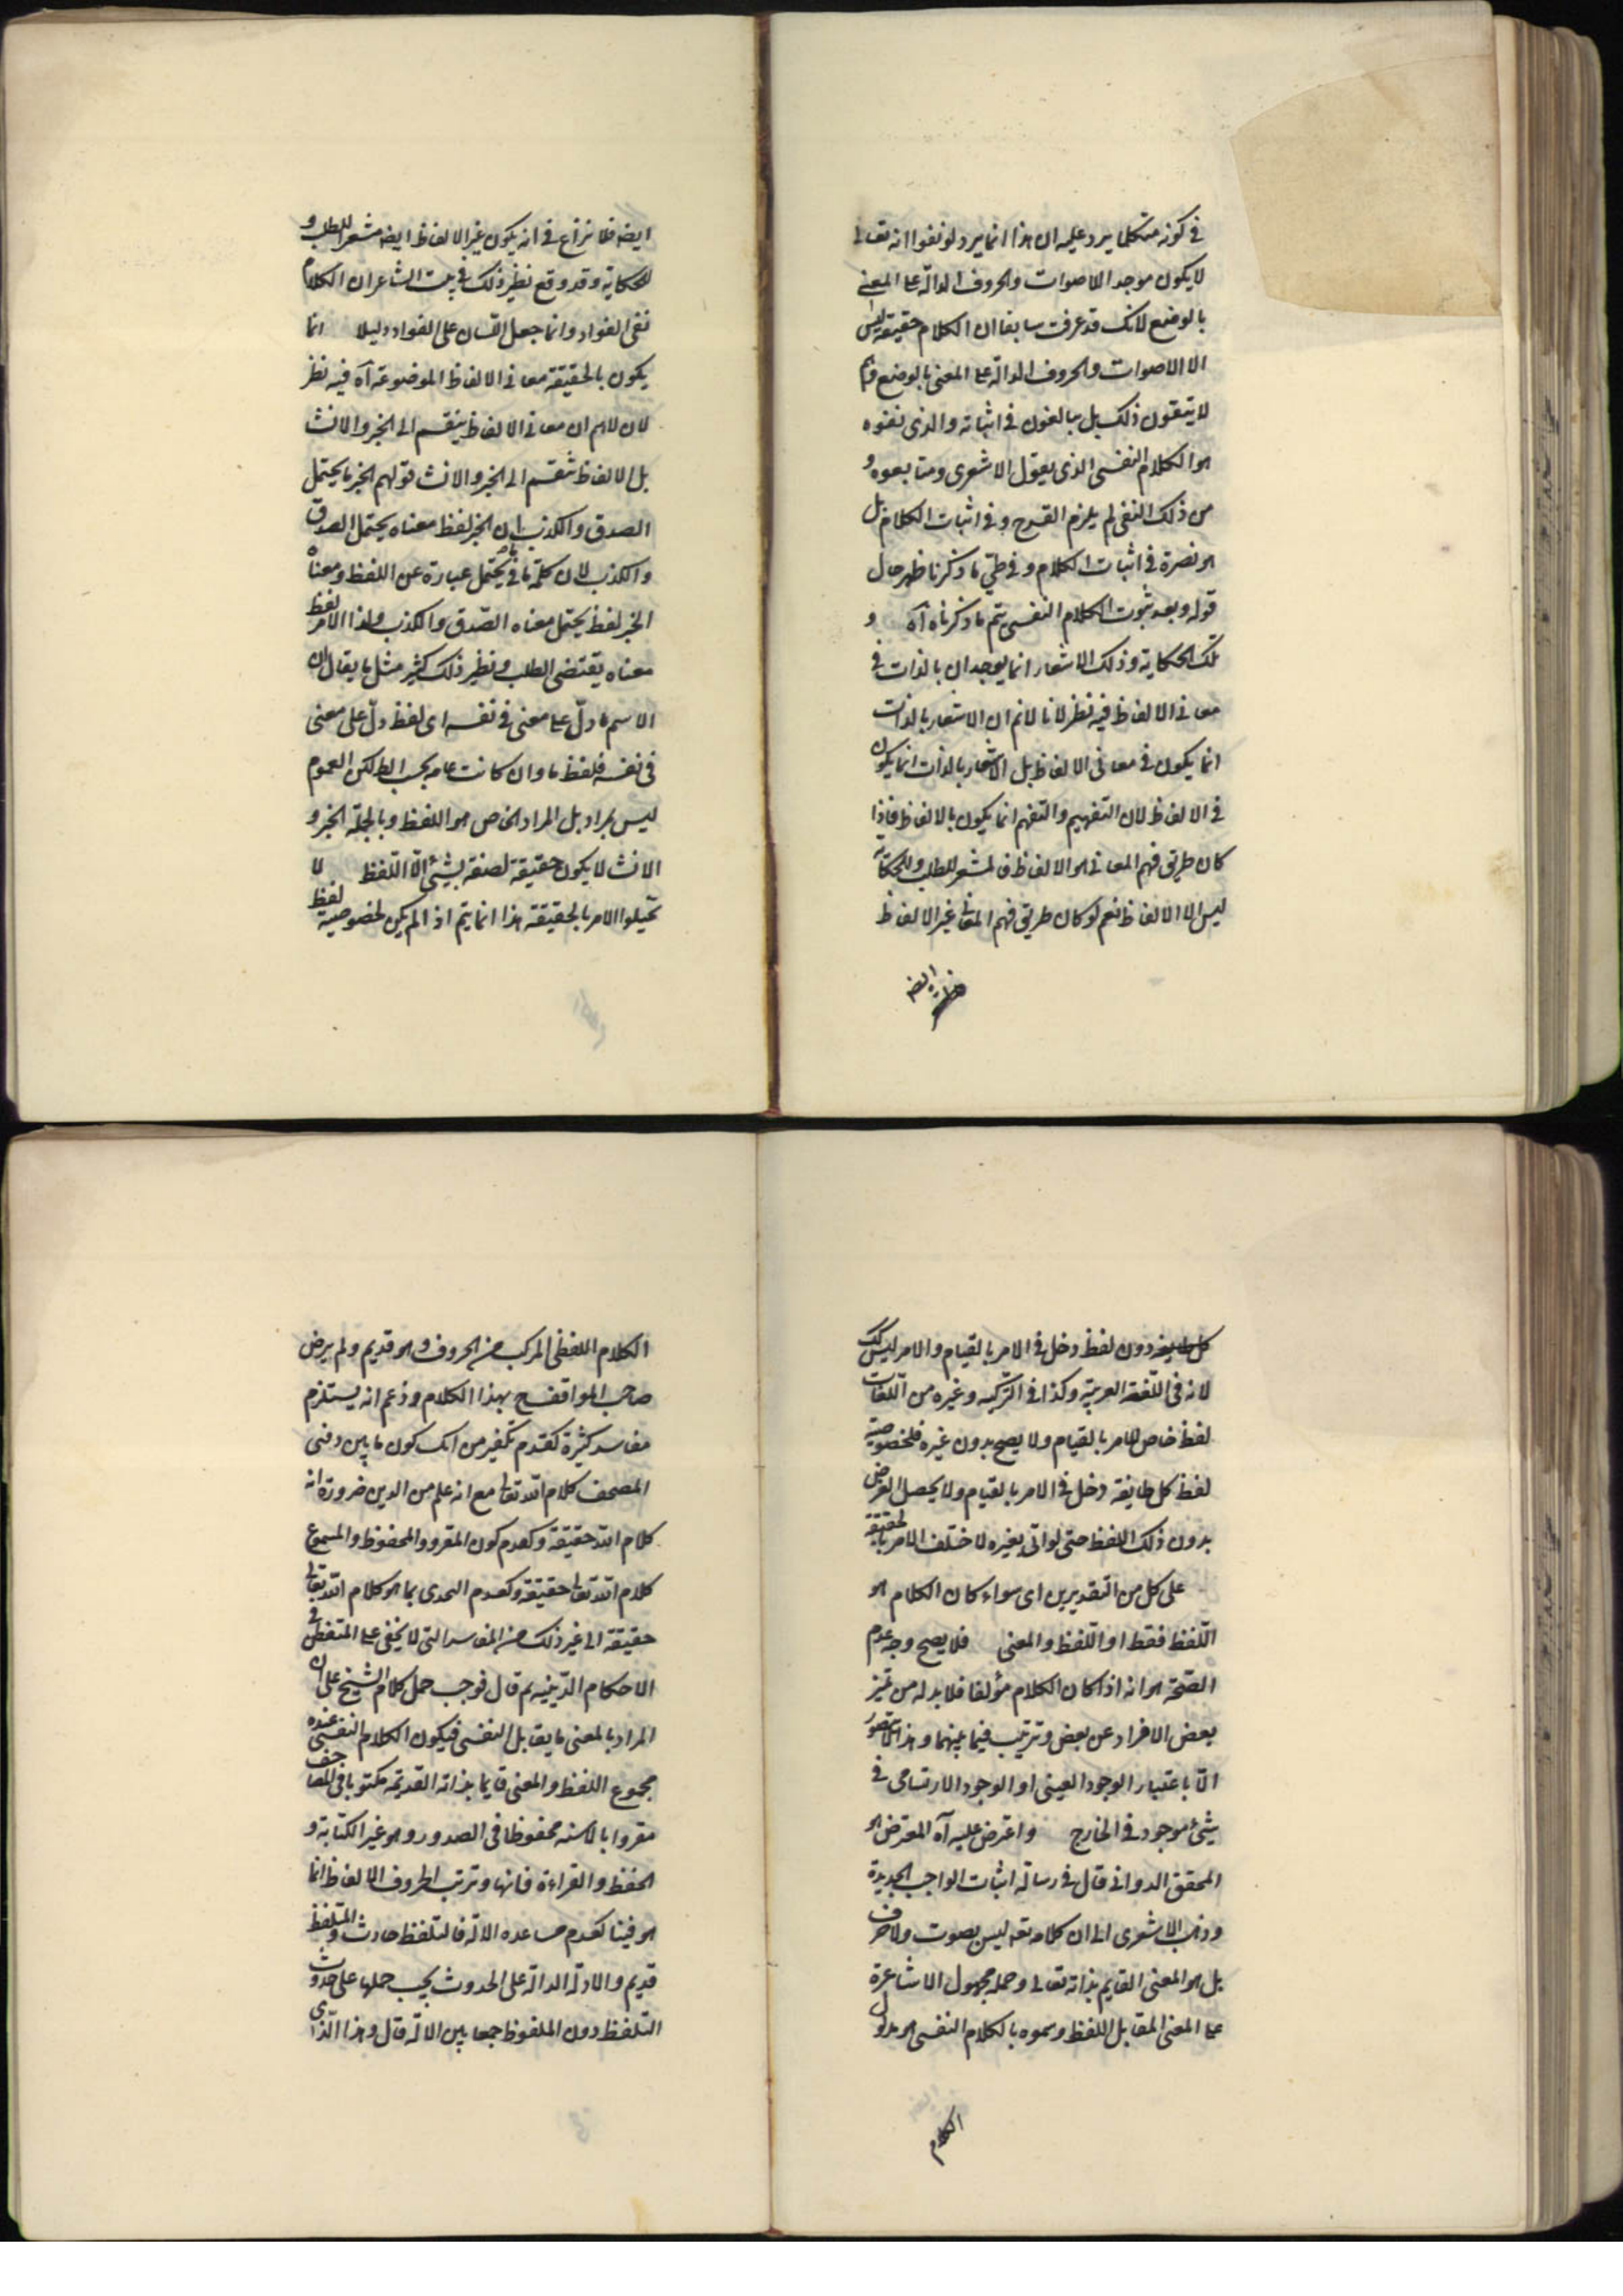 في كونه متكلما يرد عليه ان هذا انما يرد لو نفوا انه تعالى
لا يكون موجد الاصوات والحروف الدالّة على المعنى
بالوضع لانك قد عرفت سابقا ان الكلام حقيقة ليس
الا الاصوات والحروف الدالّة على المعنى بالوضع وهم
لا ينفون ذلك بل يبالغون في اثباته والذى نفوه
هو الكلام النفسى الذى يقول الاشعرى ومتابعوه و
من ذلك النفى لم يلزم القدح في اثبات الكلام بل
هو نصرة في اثبات الكلام وفي طىّ ما ذكرنا ظهر حال
قوله وبعد ثبوت الكلام النفسى يتم ما ذكرناه آه و
تلك الحكاية وذلك الاشعار انما يوجدان بالذات في
معانى الالفاظ فيه نظر لانا لانم ان الاشعار بالذات
انما يكون في معانى الالفاظ بل الاشعار بالذات انما يكون
في الالفاظ لان التفهيم والتفهم انما يكون بالالفاظ فاذا
كان طريق فهم المعانى هو الالفاظ فالمشعر للطلب والحكاية
ليس الا الالفاظ نعم لو كان طريق فهم المعانى غير الالفاظ
ايضه
ايضه فلا نزاع في انه يكون غير الالفاظ ايضه مشعرا للطلب و
للحكاية وقد وقع نظير ذلك في بيت الشاعر ان الكلام
لفى الفؤاد وانما جعل اللسان على الفواد دليلا انما
يكون بالحقيقة معانى الالفاظ الموضوعة آه فيه نظر
لان لانم ان معانى الالفاظ ينقسم الى الخبر والانشا
بل الالفاظ تنقسم الى الخبر والانشا قولهم الخبر ما يحتمل
الصدق والكذب ان الخبر لفظ معناه يحتمل الصدق
والكذب لان كلمة ما في ما يحتمل عبارة عن اللفظ ومعناه
الخبر لفظ يحتمل معناه الصّدق والكذب وكذا الامر لفظ
معناه يقتضى الطلب ونظير ذلك كثير مثل ما يقال ان
الاسم ما دلّ على معنى في نفسه اى لفظ دلّ على معنى
في نفسه فلفظ ما وان كانت عامه بحسب الظ لكن العموم
ليس بمراد بل المراد الخاص هو اللفظ وبالجملة الخبر و
الانشا لا يكون حقيقة لصفة لشئ الّا اللّفظ لا
تخيلوا الامر بالحقيقة هذا انما يتم اذا لم يكن لخصوصية لفظ
كل طايفه دون لفظ دخل في الامر بالقيام والامر ليس كك
لانه في اللّغة العربيّة وكذا في التّركيه وغيره من اللّغات
لفظ خاص للامر بالقيام ولا يصح بدون غيره فلخصوصية
لفظ كل طايفة دخل في الامر بالقيام ولا يحصل الغرض
بدون ذلك اللفظ حتى لو اتى بغيره لاختلف الامر بالحقيقة
على كل من التقديرين اى سواء كان الكلام هو
اللّفظ فقط او اللّفظ والمعنى فلا يصح وجه عدم
الصّحة هو انه اذا كان الكلام مؤلفا فلابد له من تميز
بعض الافراد عن بعض وترتيب فيما بينهما وهذا لا يتصور
الّا باعتبار الوجود العينى او الوجود الارتسامى في
شئ موجود في الخارج واعترض عليه آه المعترض هو
المحقق الدوانى قال في رسالة اثبات الواجب الجديدة
وذهب الاشعرى الى ان كلامه تعه ليس بصوت ولا حرف
بل هو المعنى القايم بذاته تعالى وحمله جمهول الاشاعرة
على المعنى المقابل للفظ وسموه بالكلام النفسى هو مدلول
الكلام
الكلام اللفظى المركب من الحروف وهو قديم ولم يرض
صاحب المواقف بهذا الكلام وزعم انه يستلزم
مفاسد كثيرة كعدم تكفير من انكر كون ما بين دفتى
المصحف كلام الله تعالى مع انه علم من الدين ضرورة انه
كلام الله حقيقة وكعدم كون المقرو والمحفوظ والمسموع
كلام الله تعالى حقيقة وكعدم التحدى بما هو كلام الله تعالى
حقيقة الى غير ذلك من المفاسد التى لا يخفى على المتفطن في
الاحكام الدّينيه ثم قال فوجب حمل كلام الشيخ على ان
المراد بالمعنى ما يقابل النفسى فيكون الكلام النفسى عنده
مجموع اللفظ والمعنى قايما بذاته القديمة مكتوبا في المصاحف
مقروا بالالسنه محفوظا في الصدور وهو غير الكتابة و
الحفظ والقراءة فانها وترتب الحروف الالفاظ انما
هو فينا لعدم مساعده الالة فالتلفظ حادث والمتلفظ
قديم والادلّة الدالة على الحدوث يجب حملها على حدوث
التلفظ دون الملفوظ جمعا بين الادلة قال وهذا الّذى